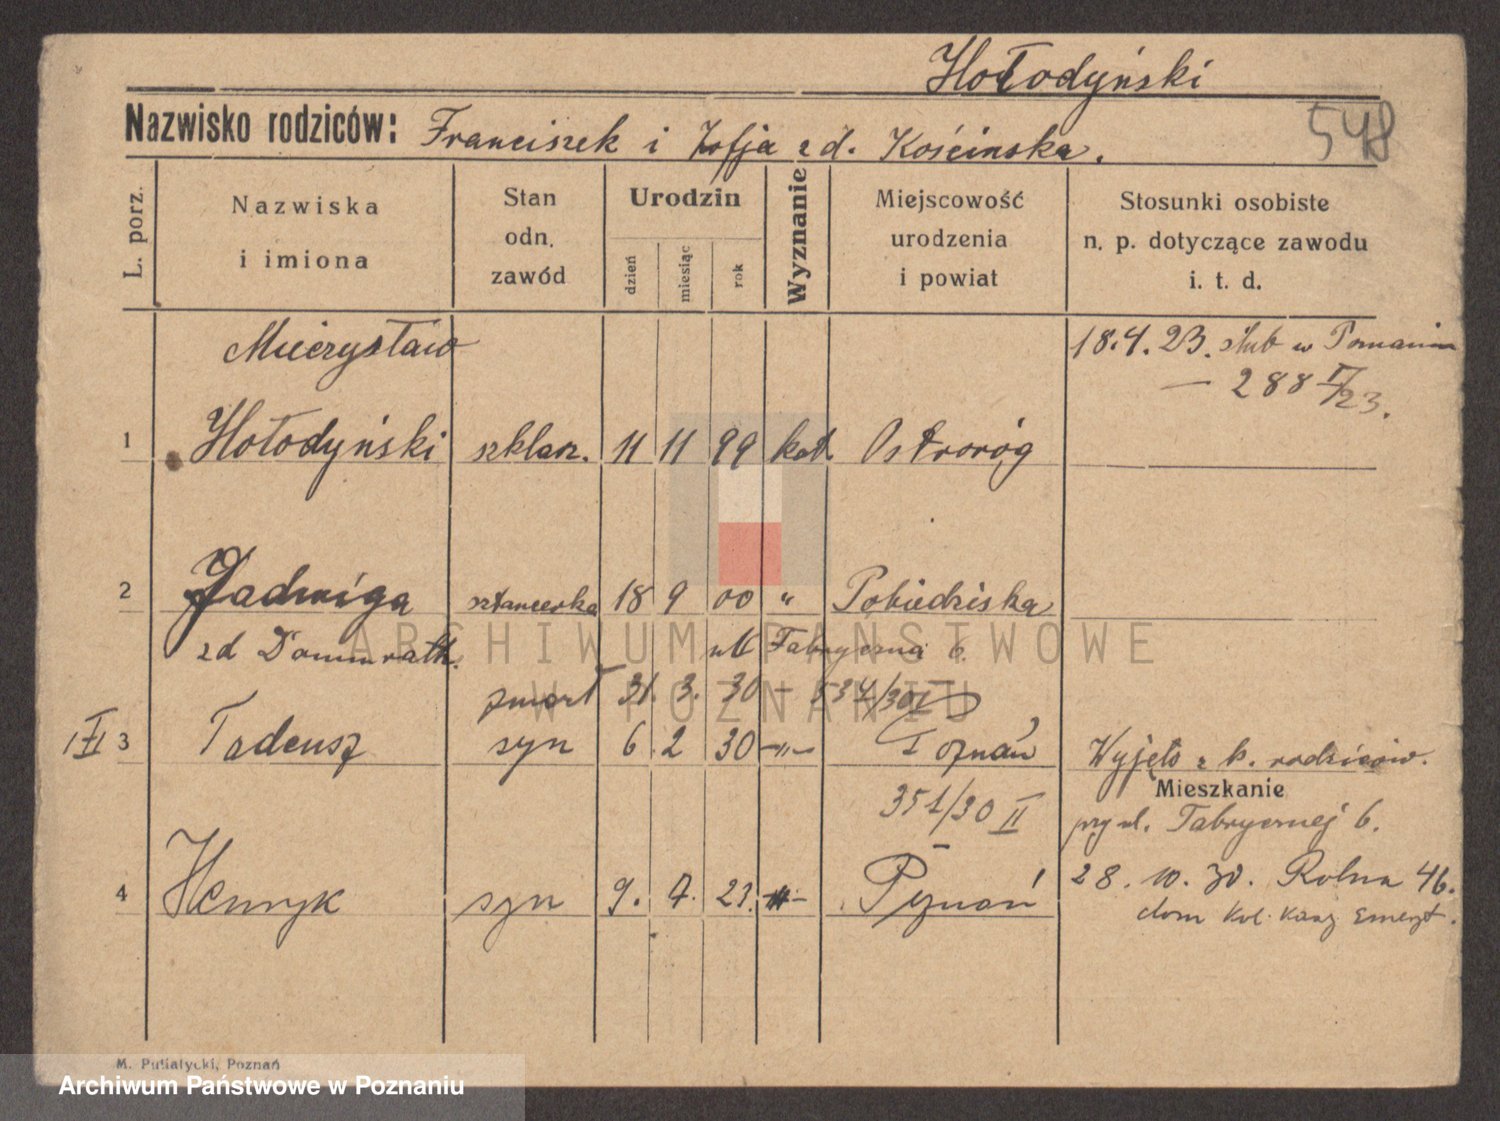 Hołodyński
Nazwisko rodziców: Franciszek i Zofja z d. Kościńska.
548
L. porz.
Nazwiska i imiona
Stan odn. zawód
Urodzin
dzień
miesiąc
rok
Wyznanie
Miejscowość urodzenia i powiat
Stosunki osobiste n. p. dotyczące zawodu i t. d.
Mieczysław
18.4.23. ślub w Poznaniu
— 288 II/23.
1 Hołodyński szklarz. 11 11 99 kat Ostroróg
2 Jadwiga sztancerka 18 9 00 " Pobiedziska
zd Dommrath. ul Fabryczna 6.
zmarł 31. 3. 30 – 534/30
III 3 Tadeusz syn 6 2 30 –"– Poznań
Wyjęto z k. rodziców.
Mieszkanie
351/30 II
przy ul. Fabrycznej 6.
4 Henryk syn 9. 7. 23. –"– Poznań
28. 10. 30. Rolna 46.
dom Kol. Kasy Emeryt.
M. Putiatycki, Poznań
ARCHIWUM PAŃSTWOWE
W POZNANIU
Archiwum Państwowe w Poznaniu